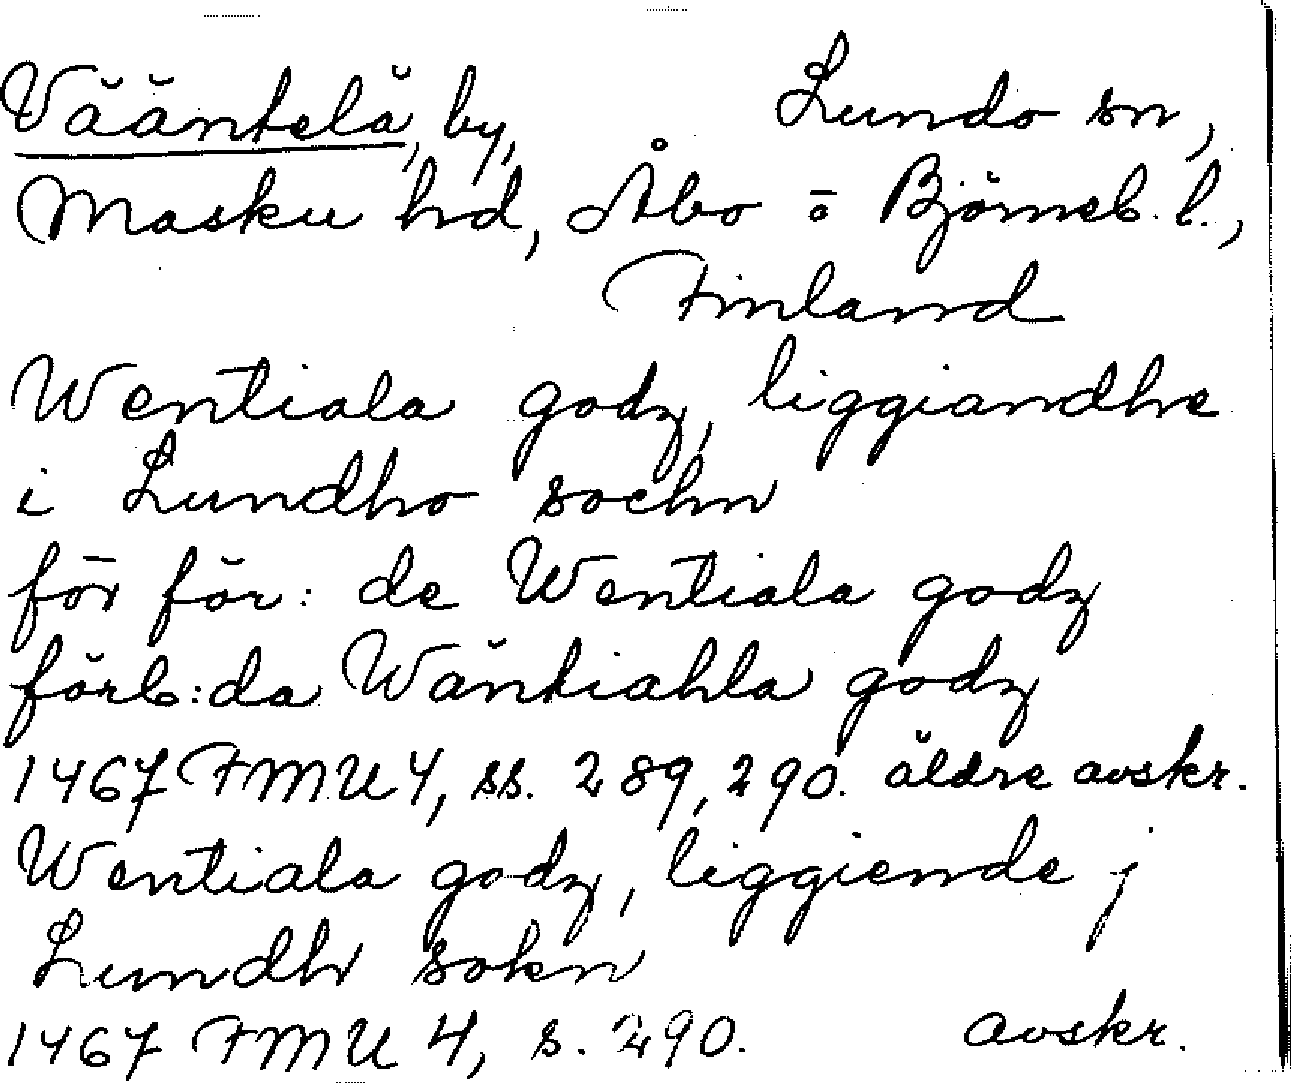 Vääntelä, by, Lundo sn,
Masku hd, Åbo o Björneb. l.,
Finland
Wentiala godz, liggiandhe
i Lundho sochn
för för: de Wentiala godz
förb:da Wäntiahla godz
1467 FMU 4, ss. 289, 290. äldre avskr.
Wentiala godz, liggiende j
Lundh sokn
1467 FMU 4, s. 290. avskr.